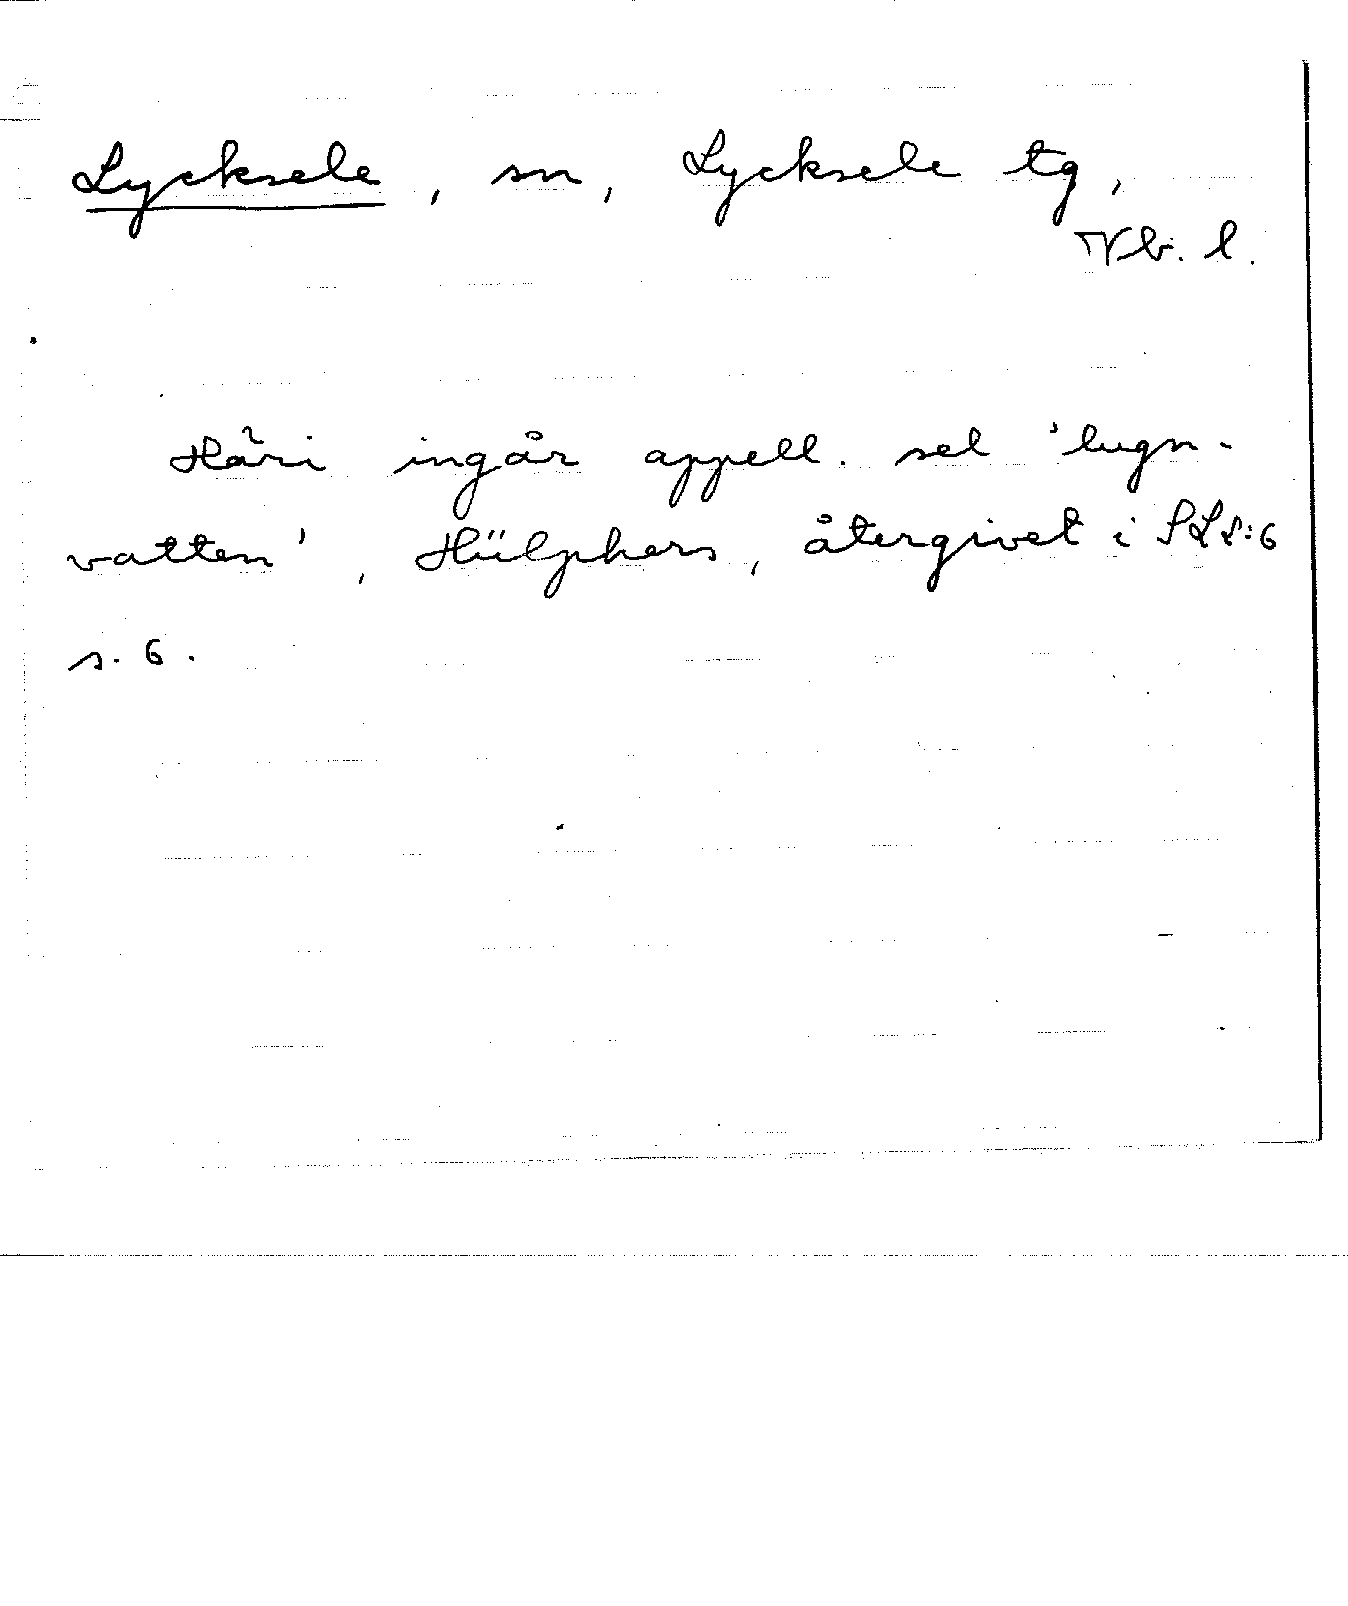 Lycksele, sn, Lycksele tg,
Vb. l.
Häri ingår appell. sel 'lugn-
vatten', Hülphers, återgivet i
s. 6.